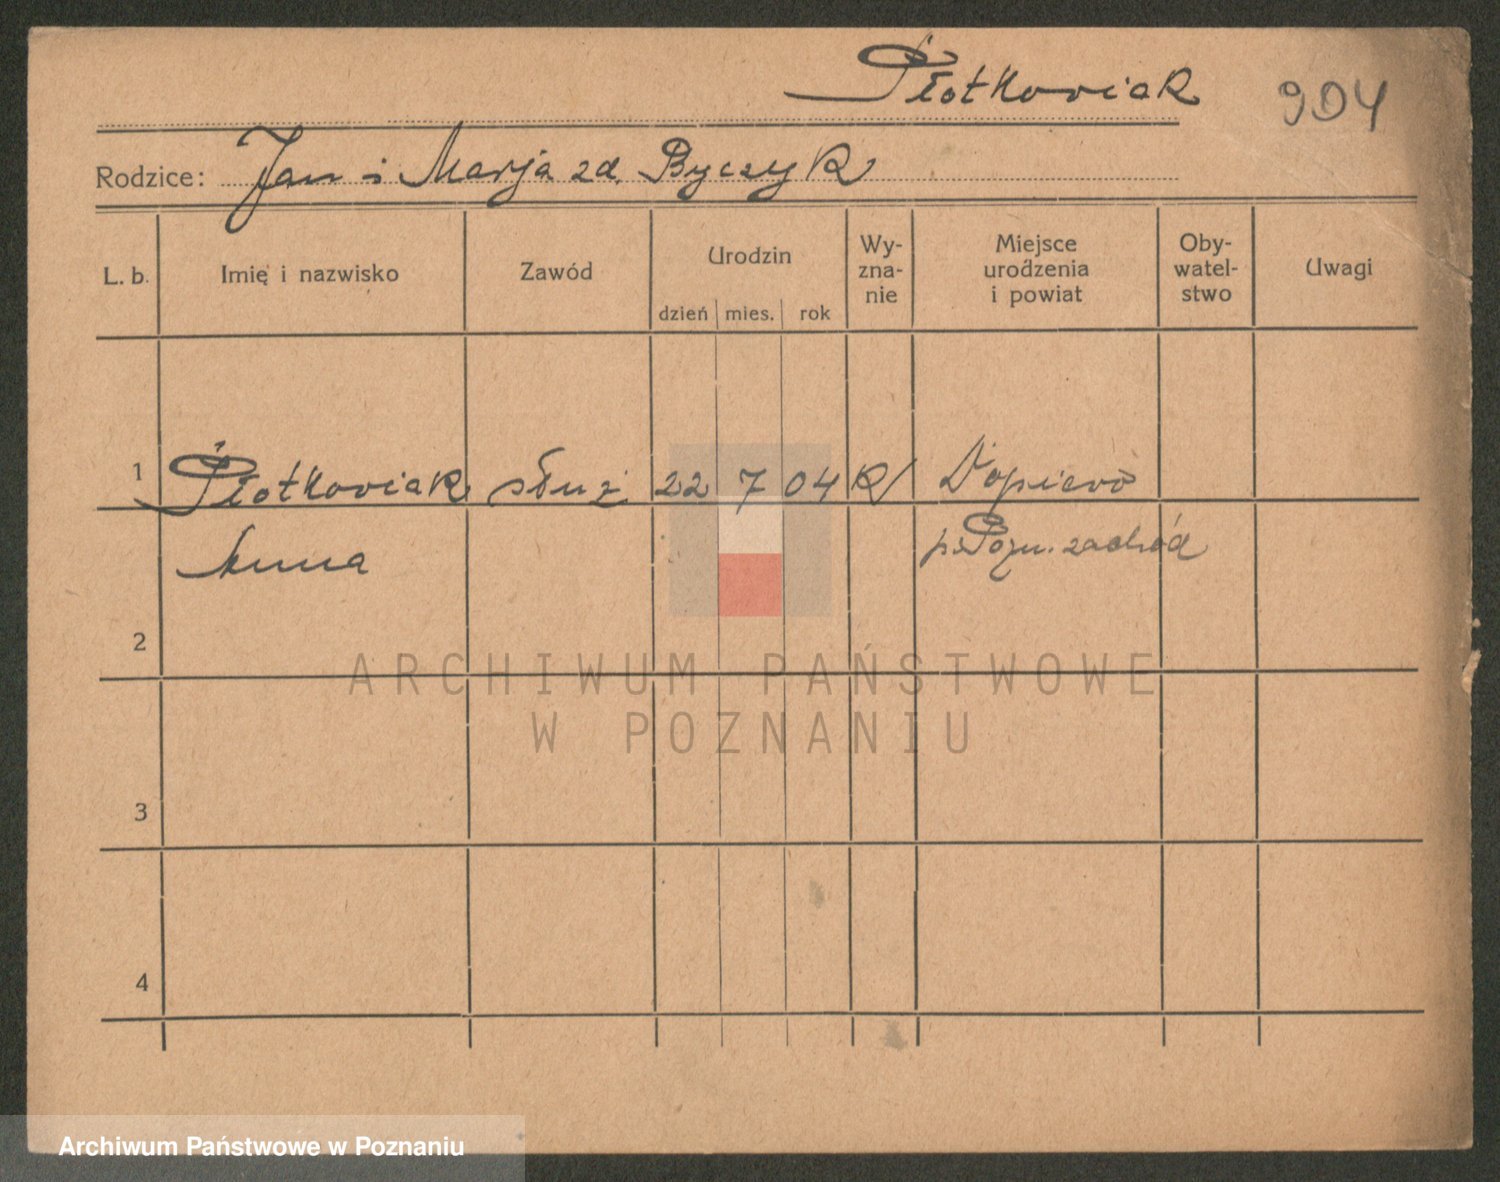 Płotkowiak 904
Rodzice: Jan i Marja zd. Byczyk
L. b. Imię i nazwisko Zawód Urodzin dzień mies. rok Wy-zna-nie Miejsce urodzenia i powiat Oby-watel-stwo Uwagi
1 Płotkowiak służ 22 7 04 R Dopiewo
Anna p. Pozn. zachód
2
3
4
ARCHIWUM PAŃSTWOWE
W POZNANIU
Archiwum Państwowe w Poznaniu